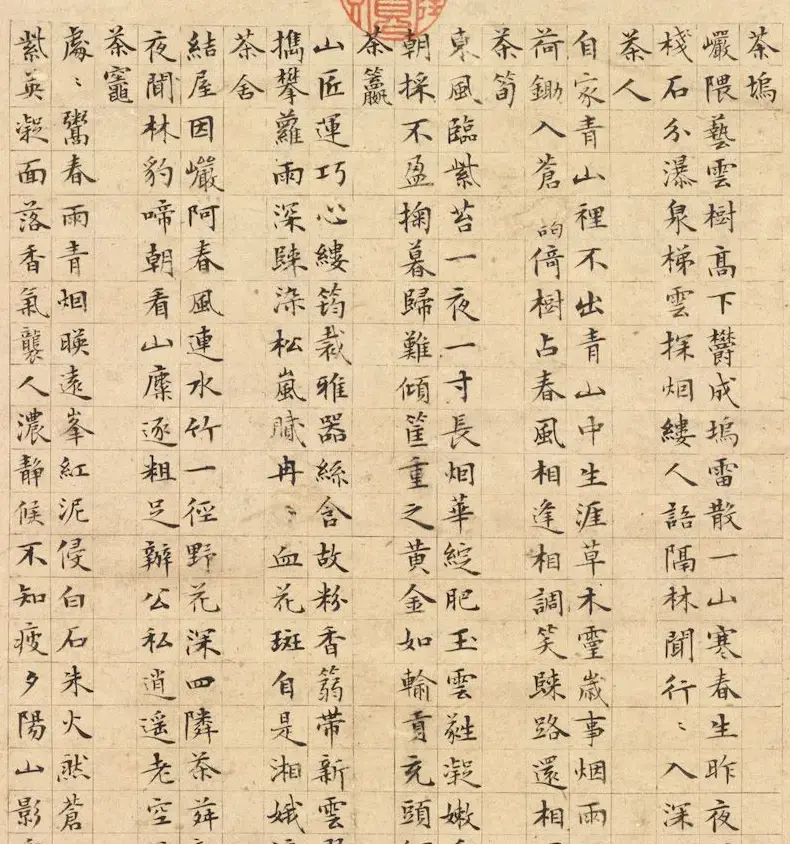 茶塢
巖隈藝雲樹高下欝成塢雷散一山寒春生昨夜
棧石分瀑泉梯雲探烟縷人語隔林聞行〻入深
茶人
自家青山裡不出青山中生涯草木靈歲事烟雨
荷鋤入蒼倚樹占春風相逢相調笑歸路還相
茶筍
東風臨紫苔一夜一寸長烟華綻肥玉雲蕤凝嫩
朝採不盈掬暮歸難傾筐重之黄金如輸貢充頭
茶籯
山匠運巧心縷筠裁雅器絲含故粉香篛帶新雲
擕攀蘿雨深歸染松嵐膩冉〻血花斑自是湘娥
茶舍
結屋因巖阿春風連水竹一徑野花深四隣茶荈
夜聞林豹啼朝看山麋逐粗足辦公私逍遥老空
茶竈
處〻鬻春雨青烟暎遠峯紅泥侵白石朱火然蒼
紫英凝面落香氣襲人濃靜候不知疲夕陽山影